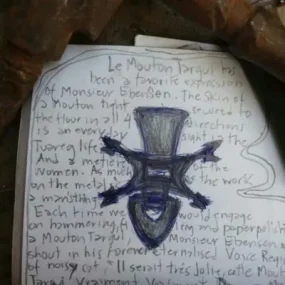 Le Mouton Targui has
been a favorite expression
of Monsieur Ebenson. The skin of
a Mouton tight secured to
the floor in all 4 directions
is an everyday sight in the
Tuareg life
And a metiere the
Women. As much as the work
on the metal
Each time we would engage
on hammering, and paperpolish
a Mouton Targui, Monsieur Ebenson
shout in his forever eternalised Voice
of noisy "Il serait très Jolie, cette Mouton
Targui Vraiment